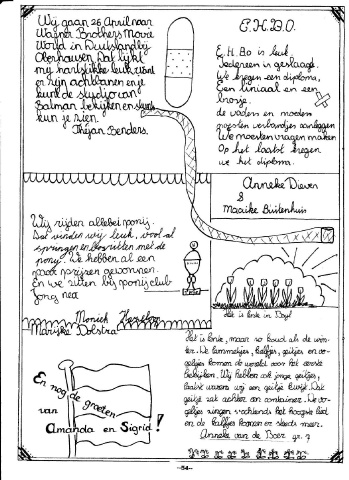 Wij gaan 26 April naar
Wagner Brothers Movie
World in Duitsland bij
Oberhausen. Dat lijkt
mij hartstikke leuk, want
er zijn achtbanen en je
kunt de studio van
Batman bekijken en stunts
kun je zien.
Thijan Benders.
E.H.B.O.
E.H.Bo is leuk.
Iedereen is geslaagd.
We kregen een diploma,
Een liniaal en een
broisje.
de vaders en moeders
moesten verbandjes aanleggen
We moesten vragen maken
Op het laatst kregen
we het diploma.
Anneke Dieven
&
Maaike Buitenhuis
Wij rijden allebei pony.
Dat vinden wij leuk, vooral
springen en bosritten met de
pony. We hebben al een
paar prijzen gewonnen.
En we zitten bij ponyclub
Moniek
Marijke Dolstra
Het is lente in
Het is lente, maar zo koud als de win-
ter. De lammetjes, kalfjes, geitjes en vo-
geltjes komen de wereld voor het eerst
bekijken. Wij hebben ook jonge geitjes,
laatst waren wij een geitje kwijt. Dat
geitje zat achter een container. De vo-
geltjes zingen 's ochtends het hoogste lied
en de kalfjes komen er steeds meer.
Anneke van de Boer gr. 7
En nog de groeten
van
Amanda en Sigrid!
-54-